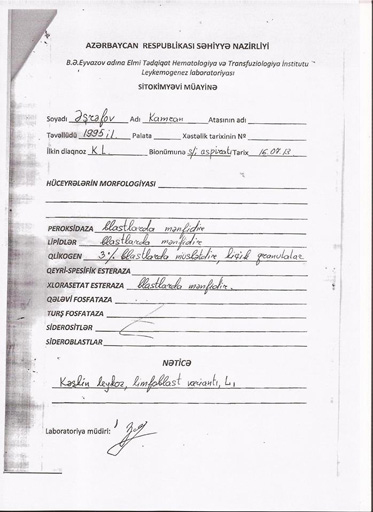 AZƏRBAYCAN RESPUBLİKASI SƏHİYYƏ NAZİRLİYİ
B.Ə.Eyvazov adına Elmi Tədqiqat Hematologiya və Transfuziologiya İnstitutu
Leykemogenez laboratoriyası
SİTOKİMYƏVİ MÜAYİNƏ
Soyadı Əşrəfov Adı Kamran Atasının adı
Təvəllüdü 1995 il Palata Xəstəlik tarixinin №
İlkin diaqnoz KL Bionümunə s/i aspiratı Tarix 16.07.13
HÜCEYRƏLƏRİN MORFOLOGİYASI
PEROKSİDAZA blastlarda mənfidir
LİPİDLƏR blastlarda mənfidir
QLİKOGEN 3% blastlarda müsbətdir, kiçik qranulalar
QEYRİ-SPESİFİK ESTERAZA
XLORASETAT ESTERAZA blastlarda mənfidir.
QƏLƏVİ FOSFATAZA
TURŞ FOSFATAZA
SİDEROSİTLƏR
SİDEROBLASTLAR
NƏTİCƏ
Kəskin leykoz, limfoblast variantı, L1
Laboratoriya müdiri: